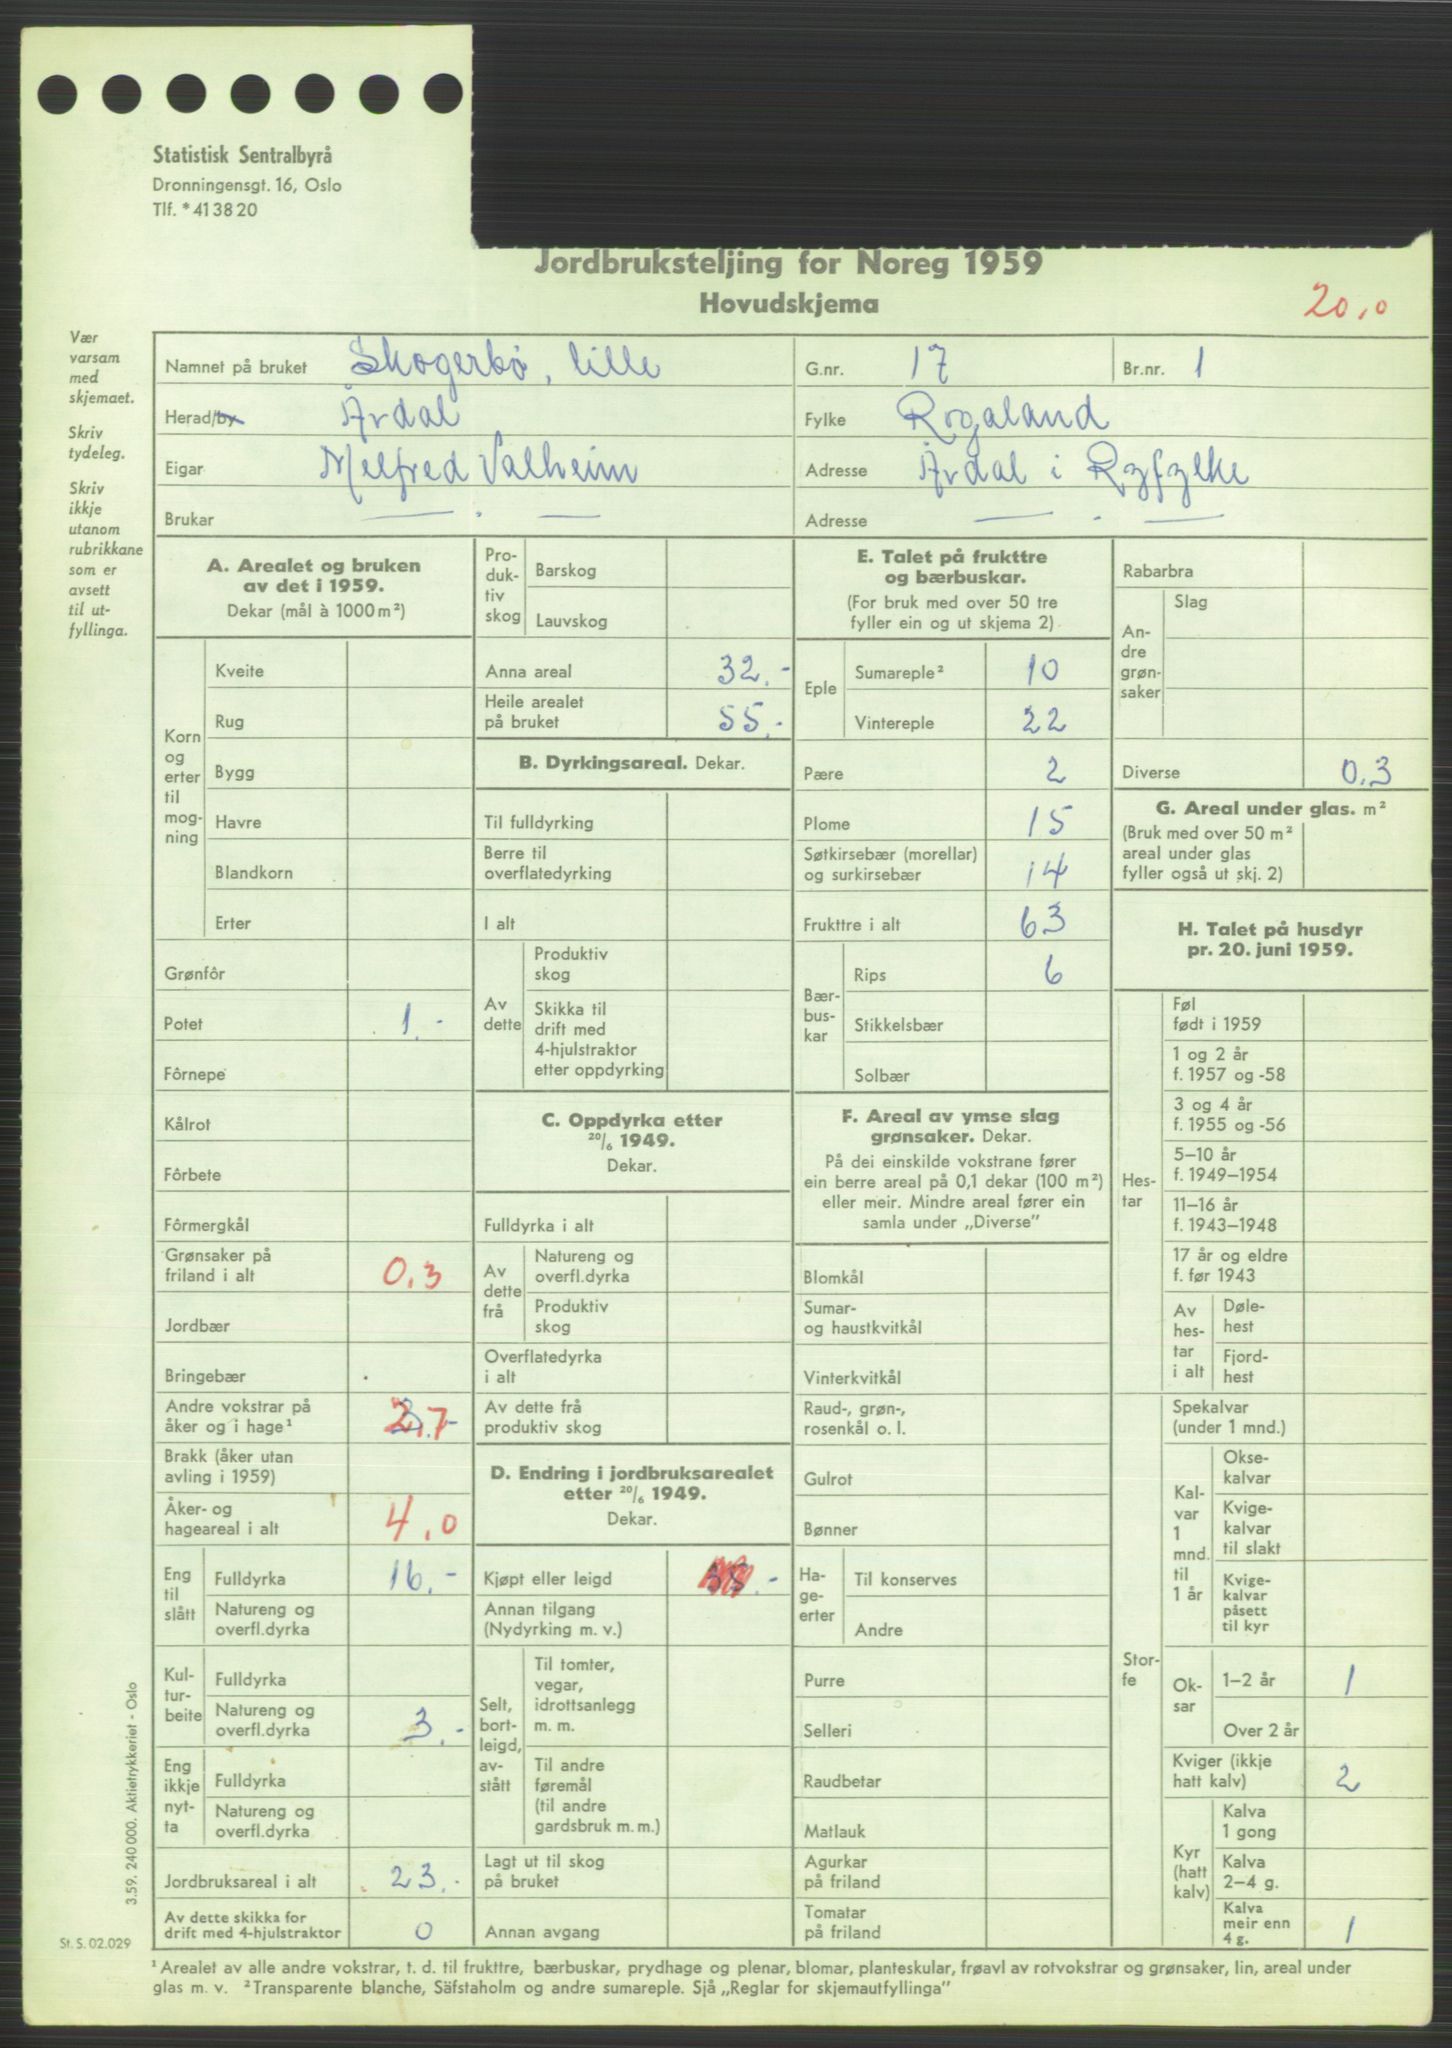 Statistisk Sentralbyrå
Dronningensgt. 16, Oslo
Tlf. *41 38 20
Jordbruksteljing for Noreg 1959
Hovudskjema
20,0
Vær
varsam
med
skjemaet.
Skriv
tydeleg.
Skriv
ikkje
utanom
rubrikkane
som er
avsett
til ut-
fyllinga.
Namnet på bruket Skogerbø, lille G.nr. 17 Br.nr. 1
Herad/by Årdal Fylke Rogaland
Eigar Melfred Valheim Adresse Årdal i Ryfylke
Brukar — . — Adresse — . —
A. Arealet og bruken
av det i 1959.
Dekar (mål à 1000 m²)
Korn
og
erter
til
mog-
ning
Kveite
Rug
Bygg
Havre
Blandkorn
Erter
Grønfôr
Potet 1.-
Fôrnepe
Kålrot
Fôrbete
Fôrmergkål
Grønsaker på
friland i alt 0,3
Jordbær
Bringebær
Andre vokstrar på
åker og i hage¹ 2,7
Brakk (åker utan
avling i 1959)
Åker- og
hageareal i alt 4,0
Eng
til
slått
Fulldyrka 16.-
Natureng og
overfl.dyrka
Kul-
tur-
beite
Fulldyrka
Natureng og
overfl.dyrka 3.-
Eng
ikkje
nyt-
ta
Fulldyrka
Natureng og
overfl.dyrka
Jordbruksareal i alt 23.-
Av dette skikka for
drift med 4-hjulstraktor 0
Pro-
duk-
tiv
skog
Barskog
Lauvskog
Anna areal 32.-
Heile arealet
på bruket 55.-
B. Dyrkingsareal. Dekar.
Til fulldyrking
Berre til
overflatedyrking
I alt
Av
dette
Produktiv
skog
Skikka til
drift med
4-hjulstraktor
etter oppdyrking
C. Oppdyrka etter
20/6 1949.
Dekar.
Fulldyrka i alt
Av
dette
frå
Natureng og
overfl.dyrka
Produktiv
skog
Overflatedyrka
i alt
Av dette frå
produktiv skog
D. Endring i jordbruksarealet
etter 20/6 1949.
Dekar.
Kjøpt eller leigd
Annan tilgang
(Nydyrking m. v.)
Selt,
bort-
leigd,
av-
stått
Til tomter,
vegar,
idrottsanlegg
m. m.
Til andre
føremål
(til andre
gardsbruk m. m.)
Lagt ut til skog
på bruket
Annan avgang
E. Talet på frukttre
og bærbuskar.
(For bruk med over 50 tre
fyller ein og ut skjema 2)
Eple
Sumareple² 10
Vintereple 22
Pære 2
Plome 15
Søtkirsebær (morellar)
og surkirsebær 14
Frukttre i alt 63
Bær-
bus-
kar
Rips 6
Stikkelsbær
Solbær
F. Areal av ymse slag
grønsaker. Dekar.
På dei einskilde vokstrane fører
ein berre areal på 0,1 dekar (100 m²)
eller meir. Mindre areal fører ein
samla under „Diverse”
Blomkål
Sumar-
og haustkvitkål
Vinterkvitkål
Raud-, grøn-,
rosenkål o. l.
Gulrot
Bønner
Ha-
ge-
erter
Til konserves
Andre
Purre
Selleri
Raudbetar
Matlauk
Agurkar
på friland
Tomatar
på friland
Rabarbra
An-
dre
grøn-
saker
Slag
Diverse 0,3
G. Areal under glas. m²
(Bruk med over 50 m²
areal under glas
fyller også ut skj. 2)
H. Talet på husdyr
pr. 20. juni 1959.
Hes-
tar
Føl
født i 1959
1 og 2 år
f. 1957 og -58
3 og 4 år
f. 1955 og -56
5–10 år
f. 1949–1954
11–16 år
f. 1943–1948
17 år og eldre
f. før 1943
Av
hes-
tar
i alt
Døle-
hest
Fjord-
hest
Stor-
fe
Spekalvar
(under 1 mnd.)
Kal-
var
1
mnd.
til
1 år
Okse-
kalvar
Kvige-
kalvar
til slakt
Kvige-
kalvar
påsett
til kyr
Ok-
sar
1–2 år 1
Over 2 år
Kviger (ikkje
hatt kalv) 2
Kyr
(hatt
kalv)
Kalva
1 gong
Kalva
2–4 g.
Kalva
meir enn
4 g. 1
3.59. 240 000. Aktietrykkeriet - Oslo
St. S. 02.029
¹ Arealet av alle andre vokstrar, t. d. til frukttre, bærbuskar, prydhage og plenar, blomar, planteskular, frøavl av rotvokstrar og grønsaker, lin, areal under
glas m. v. ² Transparente blanche, Säfstaholm og andre sumareple. Sjå „Reglar for skjemautfyllinga”